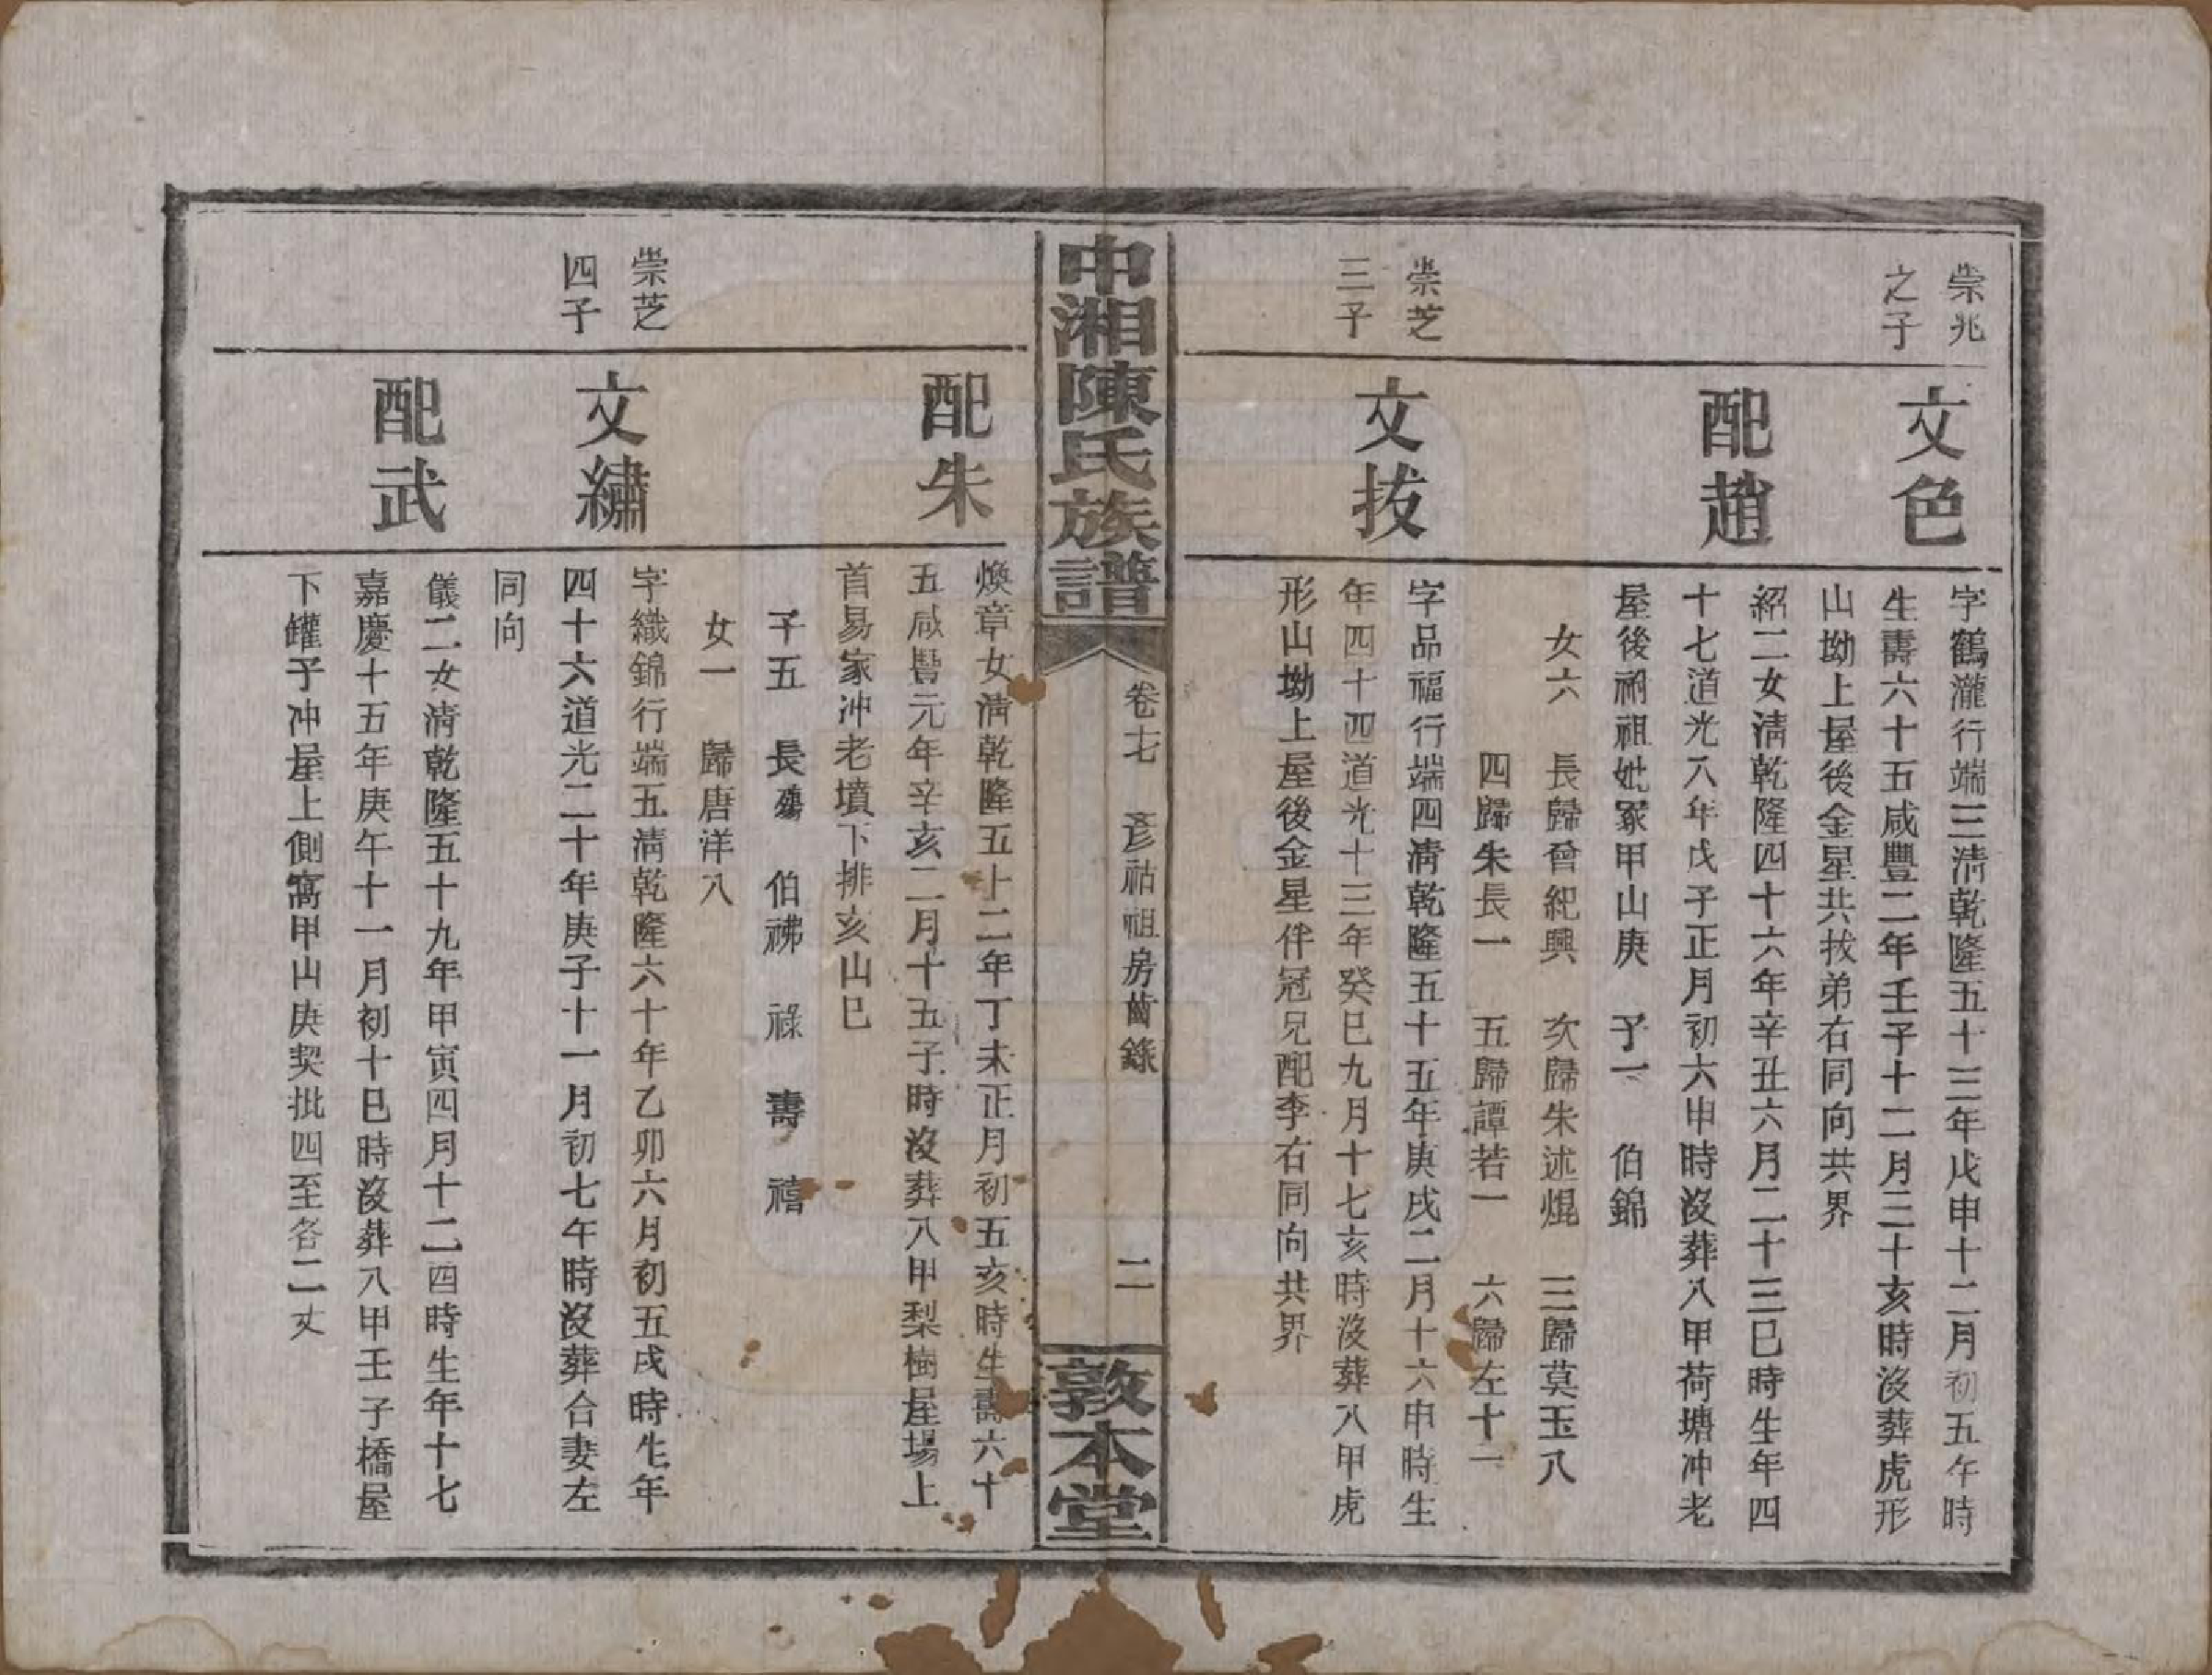 崇兆
之子
文色
字鶴瀧行端三淸乾隆五十三年戊申十二月初五午時
生壽六十五咸豐二年壬子十二月三十亥時沒葬虎形
山坳上屋後金星共拔弟右同向共界
配趙
紹二女淸乾隆四十六年辛丑六月二十三巳時生年四
十七道光八年戊子正月初六申時沒葬八甲荷塘冲老
屋後祔祖妣冢甲山庚　子一　伯錦
女六　長歸曾紀興　次歸朱述焜　三歸莫玉八
四歸朱長一　五歸譚若一　六歸左十一
崇芝
三子
文拔
字品福行端四淸乾隆五十五年庚戌二月十六申時生
年四十四道光十三年癸巳九月十七亥時沒葬八甲虎
形山坳上屋後金星伴冠兄配李右同向共界
中湘陳氏族譜
卷七　彥祜祖房齒錄　二
敦本堂
配朱
煥章女淸乾隆五十二年丁未正月初五亥時生壽六十
五咸豐元年辛亥二月十五子時沒葬八甲梨樹屋場上
首易家冲老墳下排亥山巳
子五　長殤　伯祓　祿　壽　禧
女一　歸唐洋八
崇芝
四子
文繡
字織錦行端五淸乾隆六十年乙卯六月初五戌時生年
四十六道光二十年庚子十一月初七午時沒葬合妻左
同向
配武
儀二女淸乾隆五十九年甲寅四月十二四時生年十七
嘉慶十五年庚午十一月初十巳時沒葬八甲壬子橋屋
下罐子冲屋上側窩甲山庚契批四至各二丈